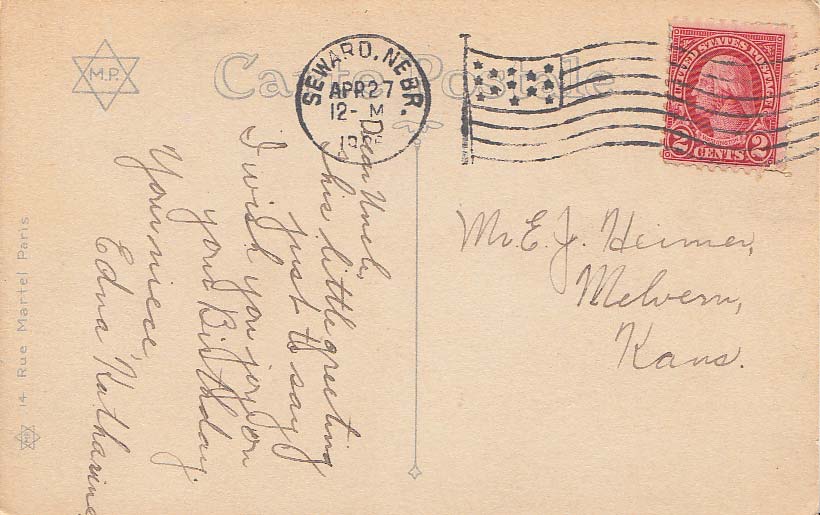 M.P.
Carte Postale
SEWARD, NEBR.
APR 27
12- M
UNITED STATES POSTAGE
2 CENTS 2
Dear Uncle,
This little greeting
just to say
I wish you joy on
your Birthday.
Your niece,
Edna Katharine
Mr. E. J. Heimer,
Melvern,
Kans.
14 Rue Martel Paris